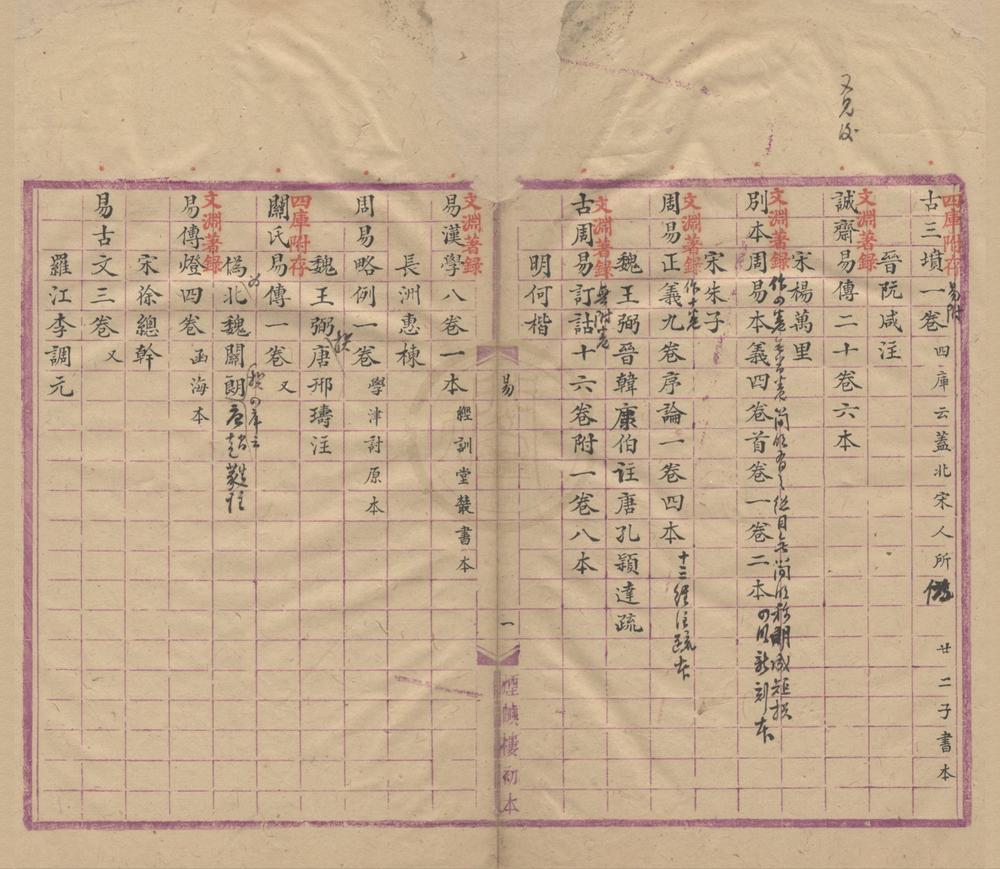 又見後
四庫附存
古三墳一卷 易附 四庫云蓋北宋人所 廿二子書本
晉阮咸注
文淵著錄
誠齋易傳二十卷六本
宋楊萬里
文淵著錄
別本周易本義四卷首卷一卷二本
宋朱子
文淵著錄 作十卷
周易正義九卷序論一卷四本 十三經注疏本
魏王弼晉韓康伯註唐孔穎達疏
文淵著錄 無附卷
古周易訂詁十六卷附一卷八本
明何楷
易
一
煙嶼樓初本
文淵著錄
易漢學八卷一本 經訓堂叢書本
長洲惠棟
周易略例一卷 學津討原本
魏王弼撰唐邢璹注
四庫附存
關氏易傳一卷 又
偽北魏關朗 唐趙蕤註
文淵著錄
易傳燈四卷 函海本
宋徐總幹
易古文三卷 又
羅江李調元